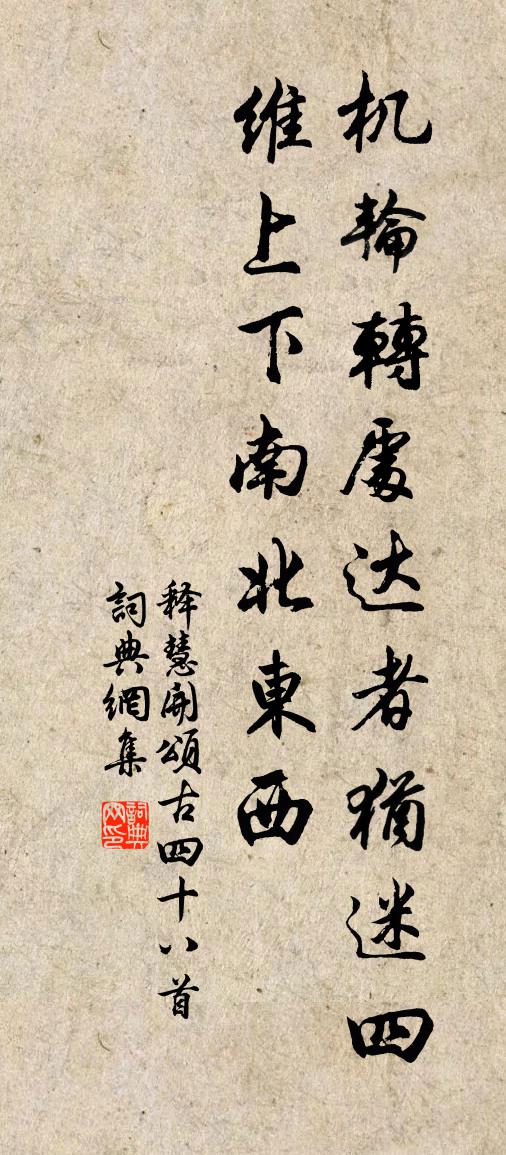 机輪轉處达者猶迷四
維上下南北東西
释慧開頌古四十八首
詞典網集
詞典网印